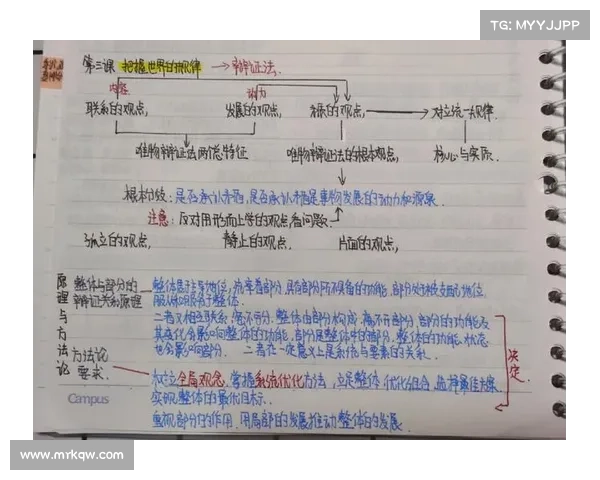 TG: MYYJJPP
第三课 把握世界的规律 → 辩证法.
内容 动力
联系的观点, 发展的观点, 矛盾的观点, → 对立统一规律.
唯物辩证法两个总特征 唯物辩证法的根本观点, 核心与实质.
根本分歧: 是否承认矛盾, 是否承认矛盾是事物发展的动力和源泉.
注意: 反对用形而上学的观点看问题
孤立的观点, 静止的观点, 片面的观点,
原理与方法论
整体与部分的辩证关系原理
整体居于主导地位, 统率着部分, 具有部分所不具备的功能, 部分处于被支配地位,
服从和服务于整体.
二者又相互联系, 密不可分. 整体由部分构成, 离不开部分, 部分的功能及
其变化会影响整体的功能, 部分是整体中的部分, 整体的功能, 状态
也会影响部分. 二者在一定意义上是系统与要素的关系.
决定.
方法论要求.
树立全局观念, 掌握系统优化方法, 立足整体, 优化组合, 选择最佳方案,
实现整体的最优目标.
重视部分的作用, 用局部的发展推动整体的发展.
Campus
www.mrkqw.com